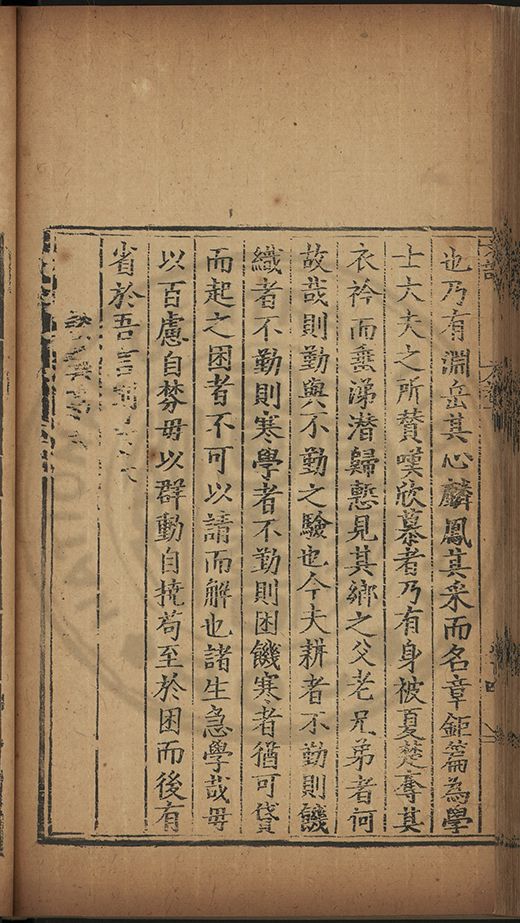 也乃有淵岳其心麟鳳其采而名章鉅篇為學
士大夫之所賛嘆欣慕者乃有身被夏楚奪其
衣衿而垂涕潜歸慙見其鄉之父老兄弟者何
故哉則勤與不勤之驗也今夫耕者不勤則饑
織者不勤則寒學者不勤則困饑寒者猶可貸
而起之困者不可以請而解也諸生急學哉毋
以百慮自棼毋以群動自撓苟至於困而後有
省於吾言